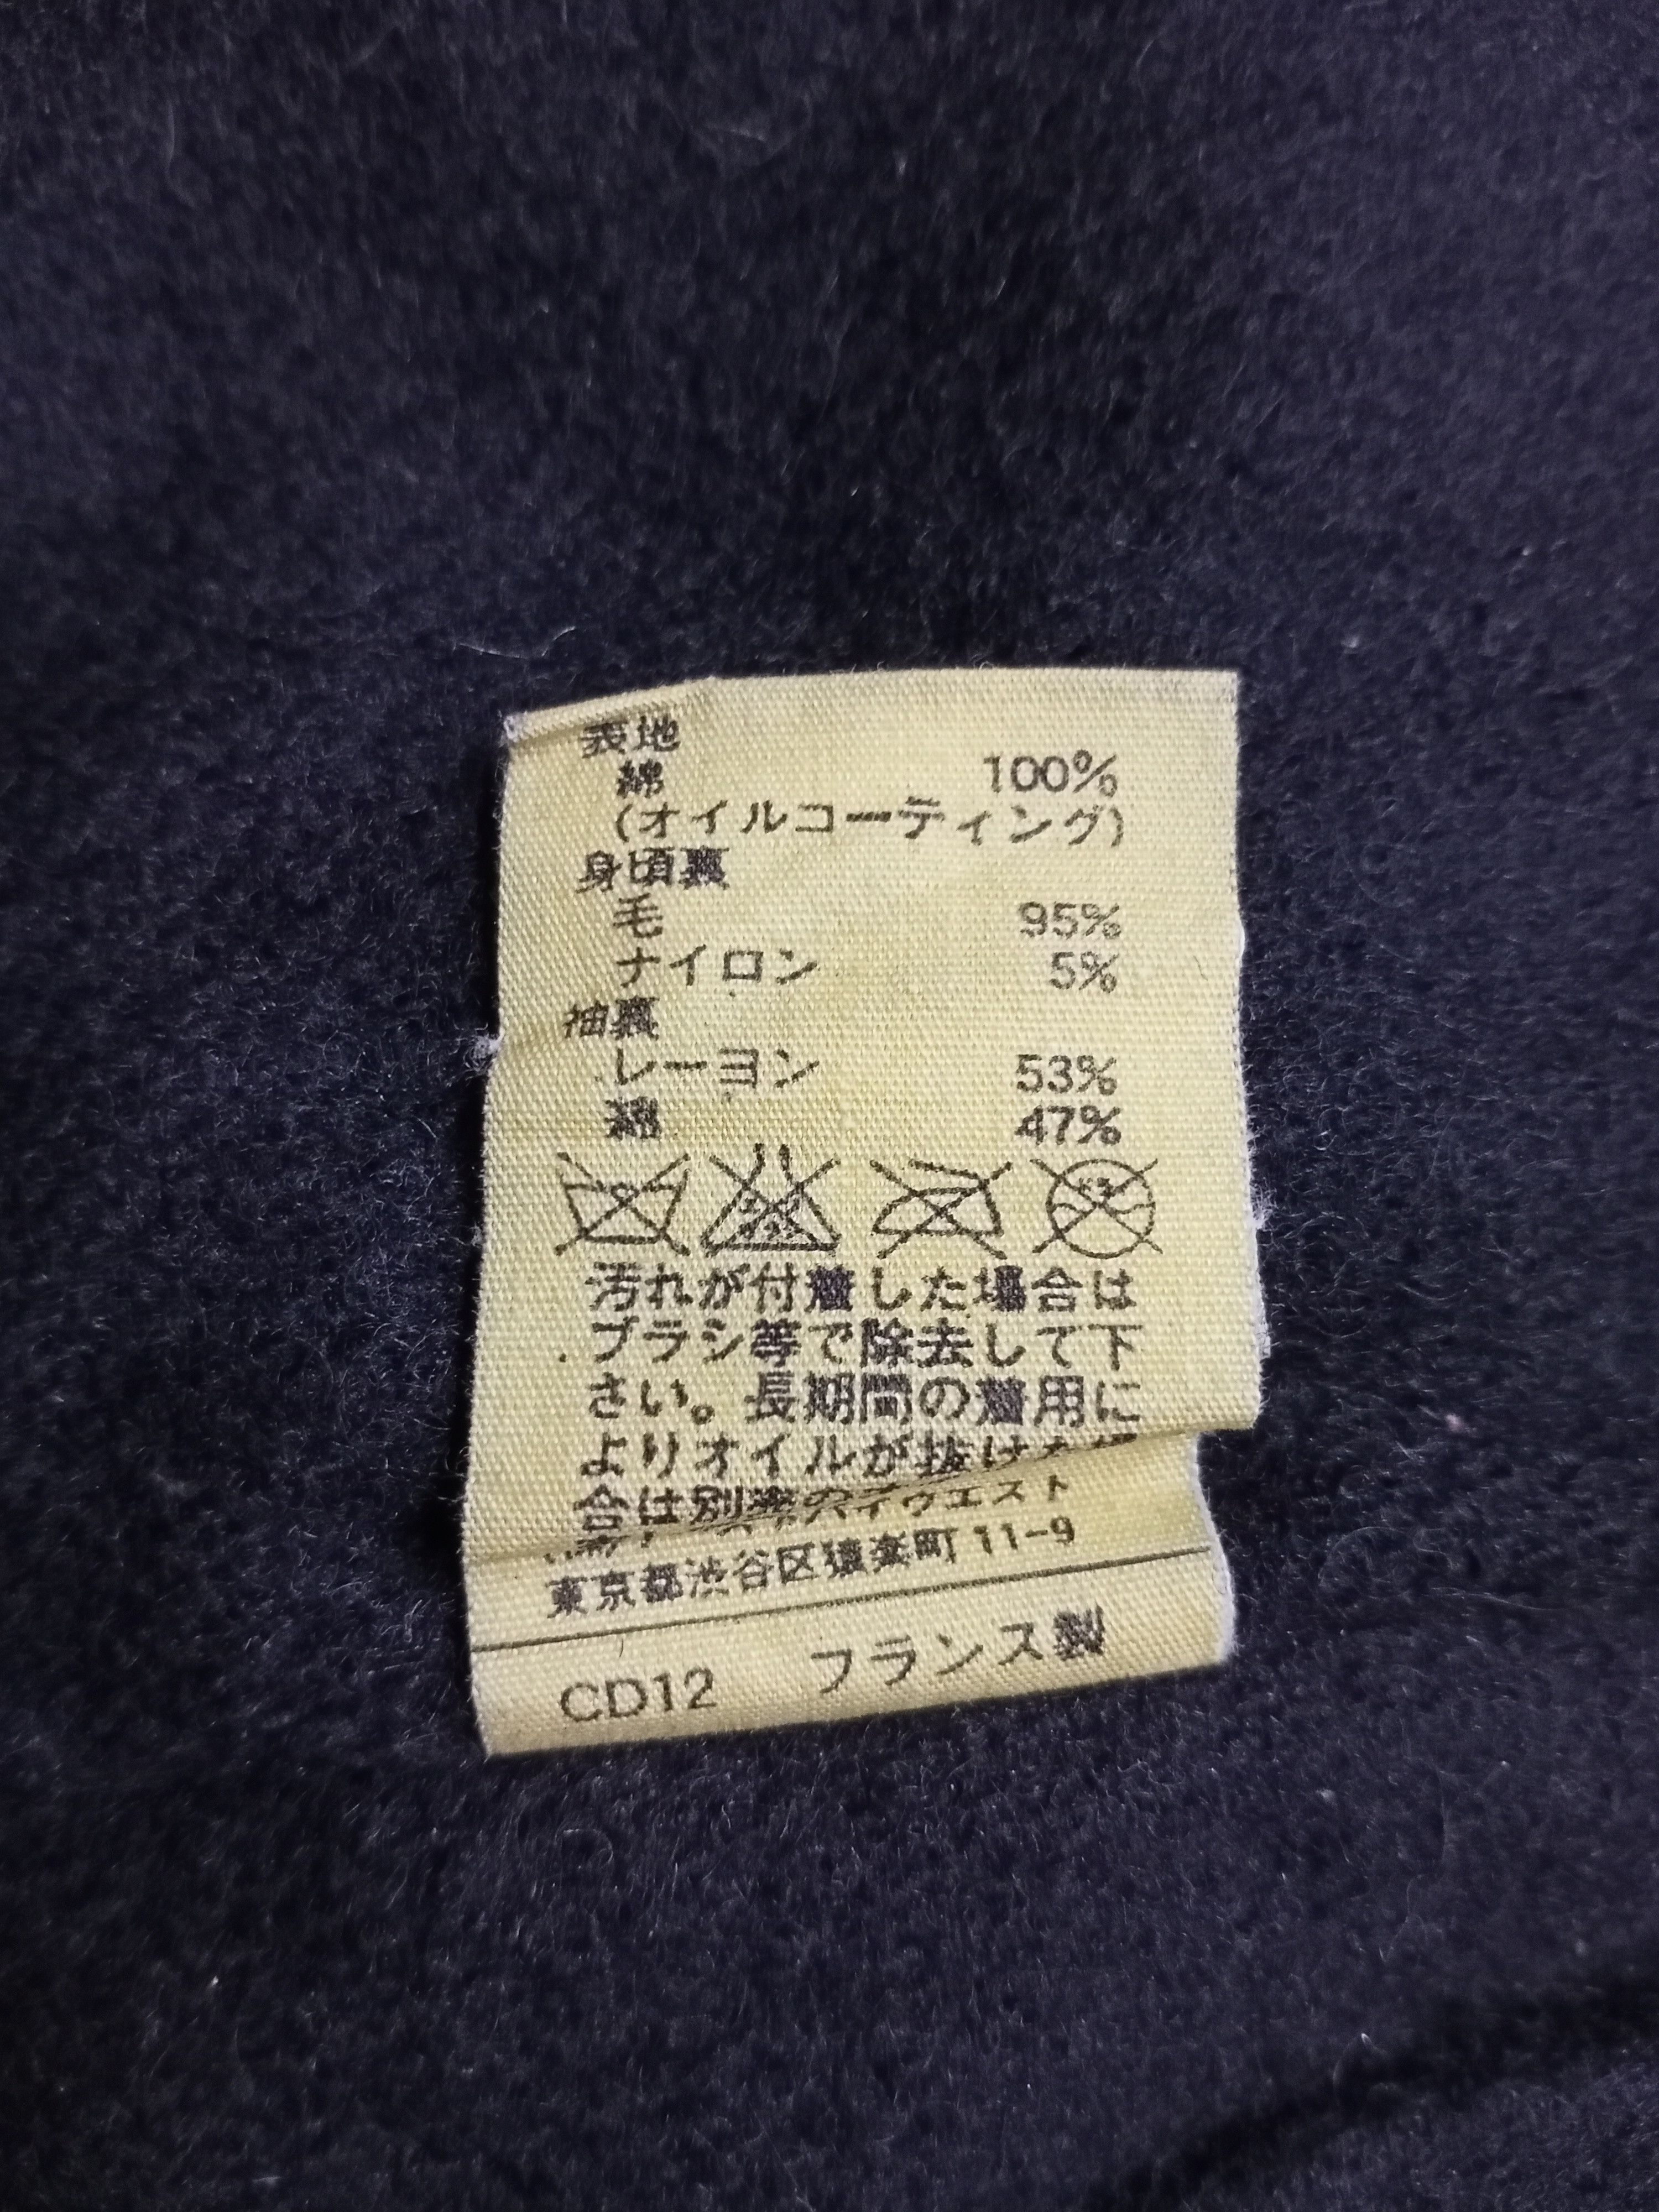 表地
綿 100%
(オイルコーティング)
身頃裏
毛 95%
ナイロン 5%
袖裏
レーヨン 53%
綿 47%
汚れが付着した場合は
ブラシ等で除去して下
さい。長期間の着用に
よりオイルが抜けた場
合は別売の
イウエスト
東京都渋谷区猿楽町11-9
CD12 フランス製